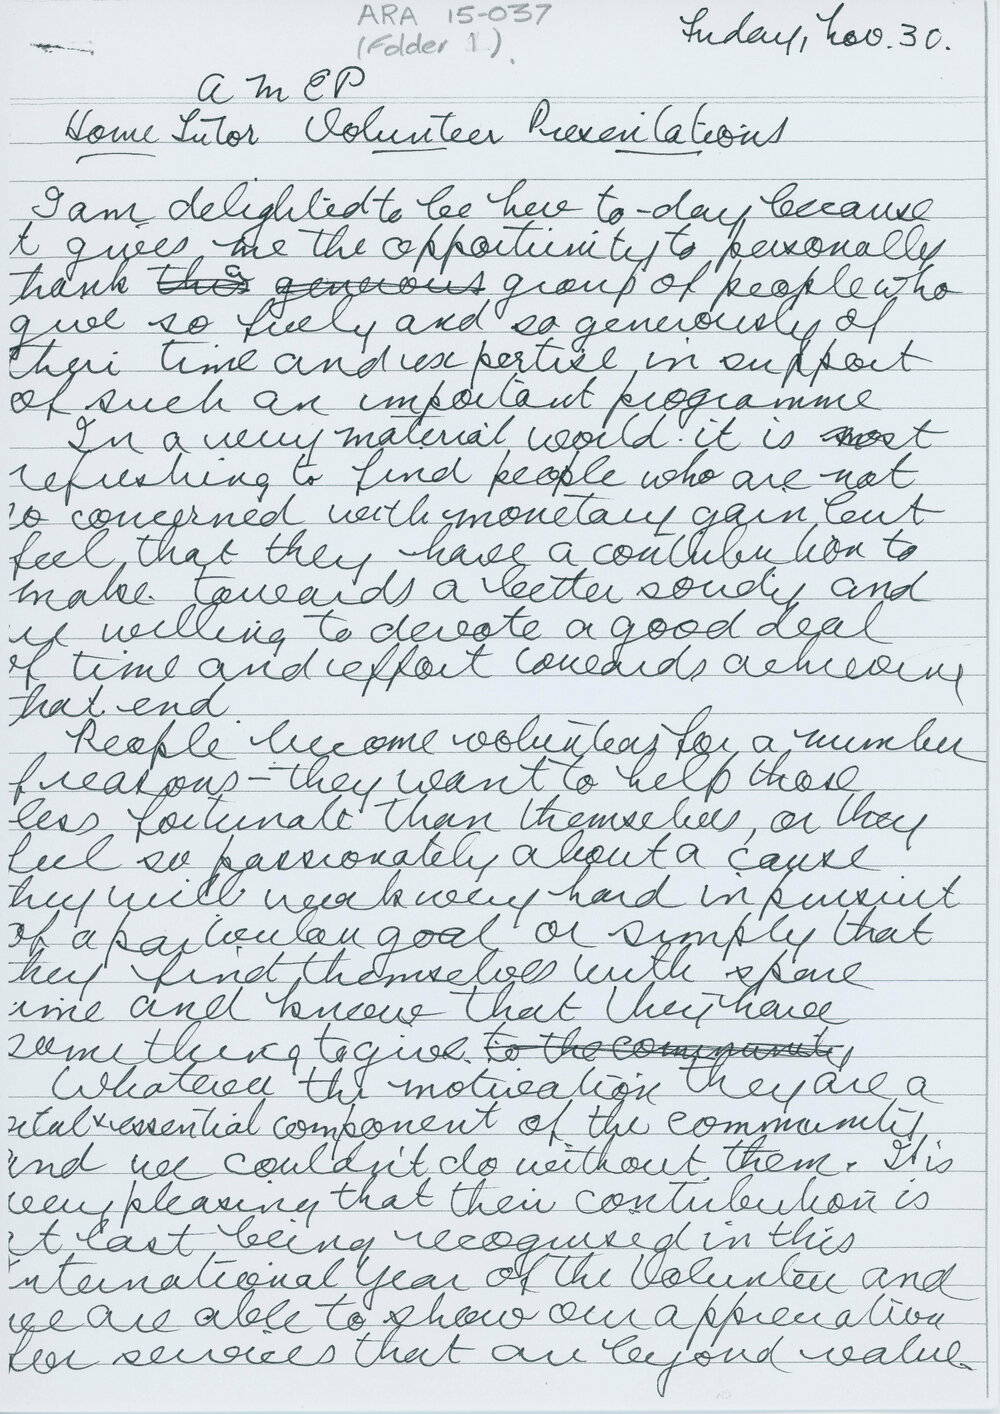 ARA 15-037
(Folder 1)
Friday, Nov. 30.
AMEP
Home Tutor Volunteer Presentations
I am delighted to be here to-day because
t gives me the opportunity to personally
thank this generous group of people who
give so freely and so generously of
their time and expertise in support
of such an important programme
In a very material world it is most
refreshing to find people who are not
so concerned with monetary gain but
feel that they have a contribution to
make towards a better society and
re willing to devote a good deal
of time and effort towards achieving
that end
People become volunteers for a number
f reasons - they want to help those
less fortunate than themselves, or they
feel so passionately about a cause
they will work very hard in pursuit
of a particular goal or simply that
they find themselves with spare
time and know that they have
something to give. to the community
Whatever the motivation they are a
vital & essential component of the community
and we couldn't do without them. It is
very pleasing that their contribution is
at last being recognised in this
International Year of the Volunteer and
we are able to show our appreciation
for services that are beyond value.